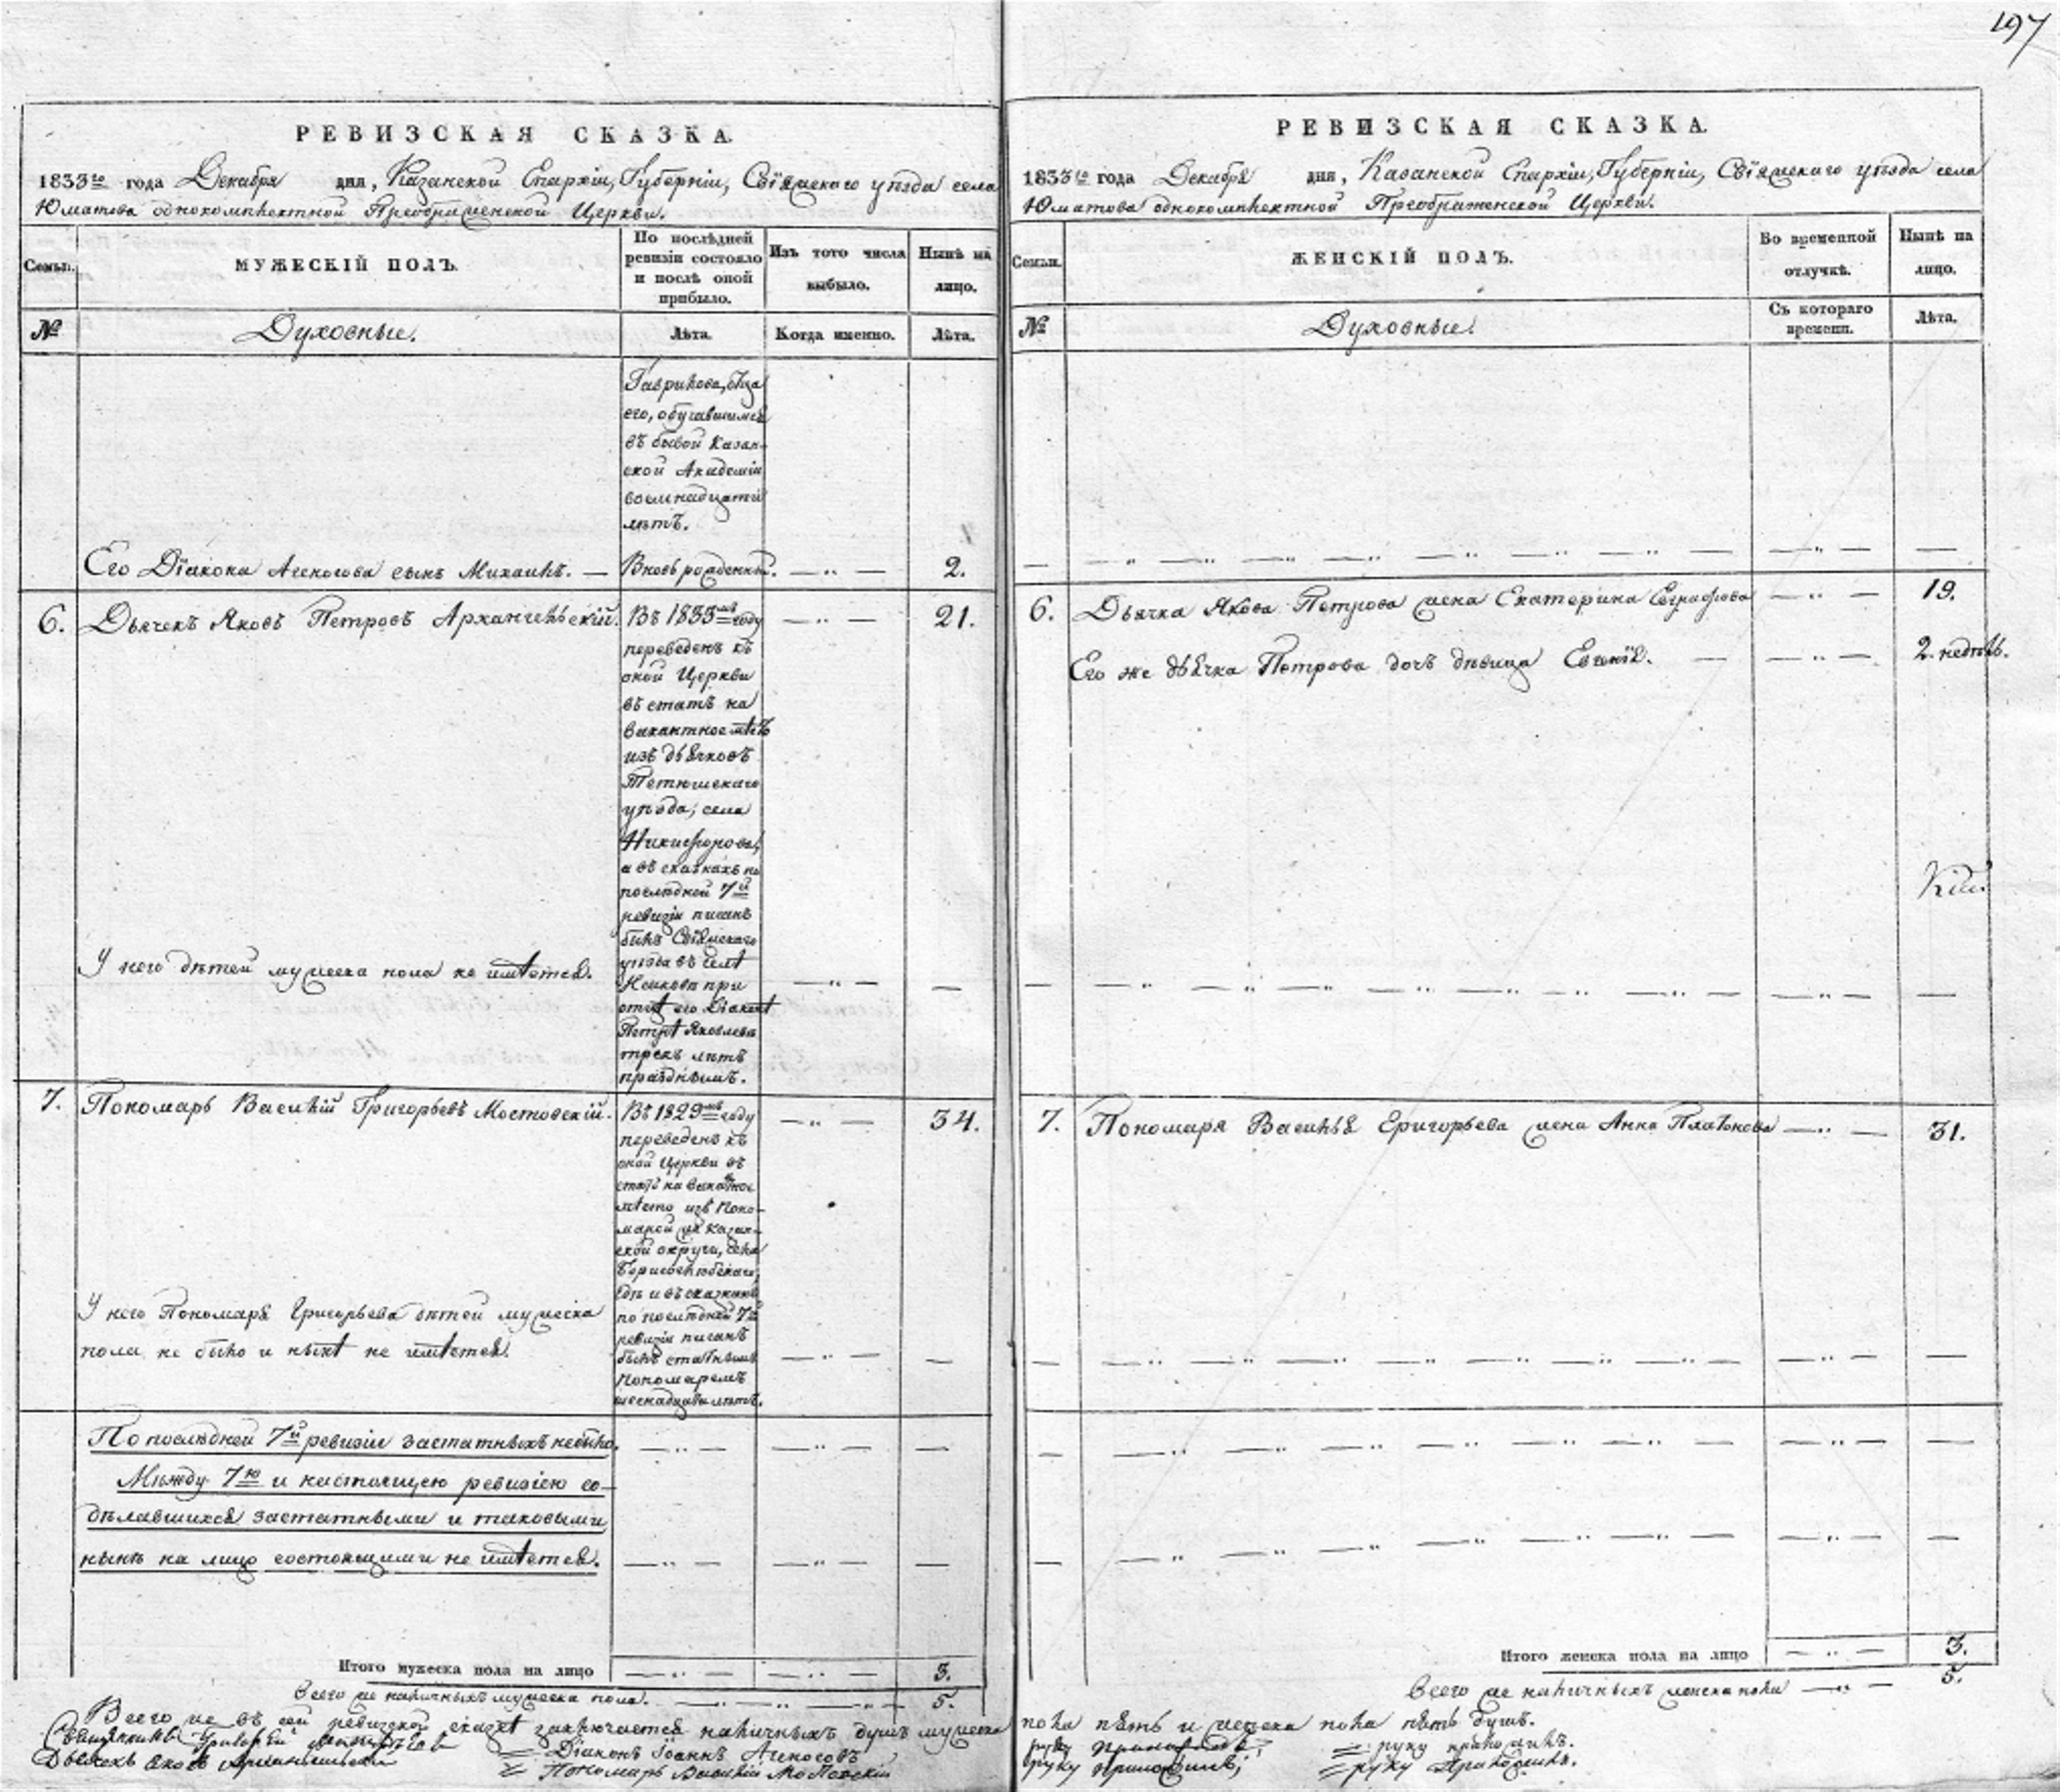 197
РЕВИЗСКАЯ СКАЗКА.
1833го года Декабря дня, Казанской Епархіи, Губерніи, Свіяжскаго уѣзда села
Юматова однокомплектной Преображенской Церкви.
Семьи.
МУЖЕСКІЙ ПОЛЪ.
По послѣдней
ревизіи состояло
и послѣ оной
прибыло.
Изъ того числа
выбыло.
Нынѣ на
лицо.
№
Духовные.
Лѣта.
Когда именно.
Лѣта.
Гаврилова, отца
его, обучавшимся
въ бывшей Казан-
ской Академіи
восмнадцати
лѣтъ.
Его Діакона Агеносова сынъ Михаилъ. — Вновь рожденный. — „ — 2.
6. Дьячекъ Яковъ Петровъ Архангельскій. Въ 1833мъ году — „ — 21.
переведенъ къ
оной Церкви
въ статъ на
вакантное мѣсто
изъ дьячковъ
Тетюшскаго
уѣзда, села
Никифорова,
а въ сказкахъ по
послѣдней 7й
ревизіи писанъ
былъ Свіяжскаго
уѣзда въ селѣ
при
отцѣ его Діаконѣ
Петрѣ Яковлевѣ
трехъ лѣтъ
празднымъ.
У него дѣтей мужеска пола не имѣется. — „ — —
7. Пономарь Василій Григорьевъ Мостовскій. Въ 1829мъ году — „ — 34.
переведенъ къ
оной Церкви въ
статъ на вакантное
мѣсто изъ Поно-
марей же Казан-
ской округи, села
Борисоглѣбскаго,
гдѣ и въ сказкахъ
по послѣдней 7й
ревизіи писанъ
былъ статнымъ
Пономаремъ
шеснадцати лѣтъ.
У него Пономаря Григорьева дѣтей мужеска
пола не было и нынѣ не имѣется. — „ — —
По послѣдней 7й ревизіи застатныхъ не было. — „ — — „ — —
Между 7ю и настоящею ревизіею со-
дѣлавшихся застатными и таковыми
нынѣ на лицо состоящими не имѣется. — „ — — „ — —
Итого мужеска пола на лицо — „ — — „ — 3.
Всего же наличныхъ мужеска пола. — „ — „ — 5.
РЕВИЗСКАЯ СКАЗКА.
1833го года Декабря дня, Казанской Епархіи, Губерніи, Свіяжскаго уѣзда села
Юматова однокомплектной Преображенской Церкви.
Семьи.
ЖЕНСКІЙ ПОЛЪ.
Во временной
отлучкѣ.
Нынѣ на
лицо.
№
Духовные.
Съ котораго
времени.
Лѣта.
6. Дьячка Якова Петрова жена Екатерина Евграфова — „ — 19.
Его же дьячка Петрова дочь дѣвица Евгенія. — — „ — 2. недѣль.
7. Пономаря Василья Григорьева жена Анна Платонова — „ — 31.
Итого женска пола на лицо — „ — 3.
Всего же наличныхъ женска пола — „ — 5.
Всего же въ сей ревизской сказкѣ заключается наличныхъ душъ мужеска пола пять и женска пола пять душъ.
Священникъ Григорій руку приложилъ;
= Діаконъ Іоаннъ Агеносовъ = руку приложилъ.
Дьячекъ Яковъ Архангельскій руку приложилъ;
= Пономарь Василій Мостовскій = руку приложилъ.